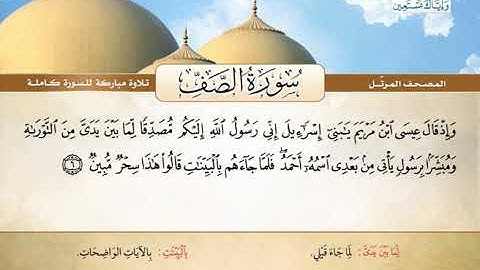 وَإِيَّاكَ نَسْتَعِين
المصحف المرتّل
سُورَةُ الصَّفِّ
تلاوة مباركة للسورة كاملة
وَإِذْ قَالَ عِيسَى ٱبْنُ مَرْيَمَ يَـٰبَنِىٓ إِسْرَٰٓءِيلَ إِنِّى رَسُولُ ٱللَّهِ إِلَيْكُم مُّصَدِّقًا لِّمَا بَيْنَ يَدَىَّ مِنَ ٱلتَّوْرَىٰةِ
وَمُبَشِّرًۢا بِرَسُولٍ يَأْتِى مِنۢ بَعْدِى ٱسْمُهُۥٓ أَحْمَدُ ۖ فَلَمَّا جَآءَهُم بِٱلْبَيِّنَـٰتِ قَالُوا۟ هَـٰذَا سِحْرٌ مُّبِينٌ ٦
لِمَا بَيْنَ يَدَيَّ: لِمَا جَاءَ قَبْلِي.
بِالْبَيِّنَاتِ: بِالآيَاتِ الْوَاضِحَاتِ.